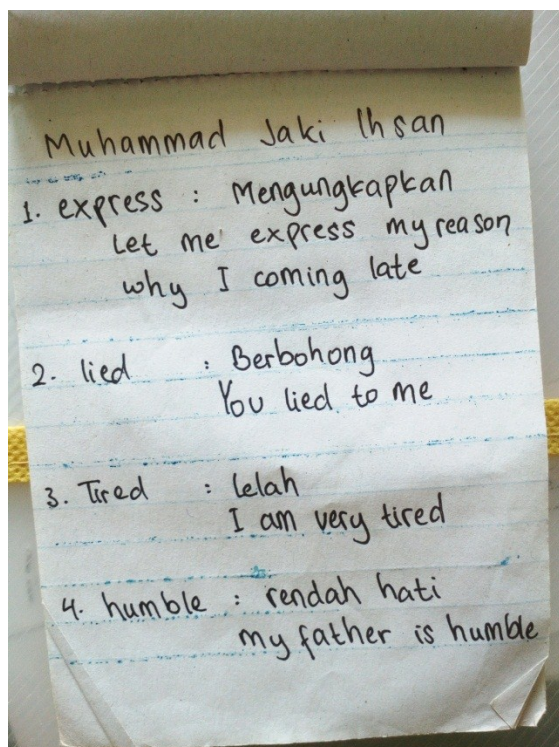 Muhammad Jaki Ihsan
1. express : Mengungkapkan
Let me express my reason
why I coming late
2. lied : Berbohong
You lied to me
3. Tired : lelah
I am very tired
4. humble : rendah hati
my father is humble